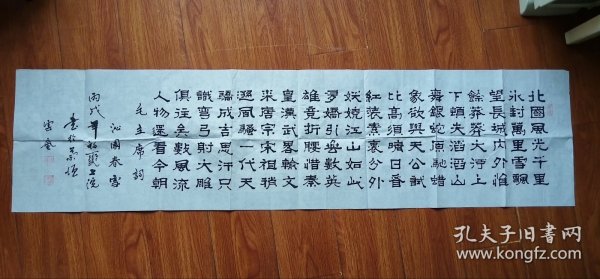 北國風光千里
冰封萬里雪飄
望長城内外惟
餘莽莽大河上
下頓失滔滔山
舞銀蛇原馳蠟
象欲與天公試
比高須晴日看
紅裝素裹分外
妖嬈江山如此
多嬌引無數英
雄竟折腰惜秦
皇漢武略輸文
采唐宗宋祖稍
遜風騷一代天
驕成吉思汗只
識彎弓射大雕
俱往矣數風流
人物還看今朝
毛主席詞
沁園春雪
丙戌
孔夫子旧书网
kongfz.com